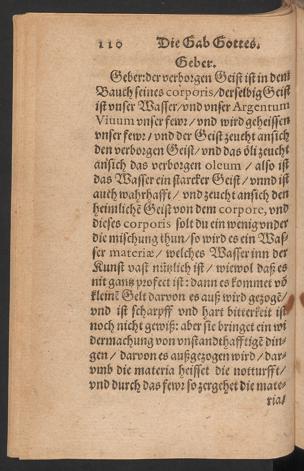 110 Die Gab Gottes.
Geber.
Geber: der verborgen Geist ist in dem
Bauch seines corporis/ derselbig Geist
ist vnser Wasser/ vnd vnser Argentum
Viuum vnser fewr/ vnd wird geheissen
vnser fewr/ vnd der Geist zeucht ansich
den verborgen Geist/ vnd das öli zeucht
ansich das verborgen oleum / also ist
das Wasser ein starcker Geist/ vnnd ist
auch wahrhafft / vnd zeucht ansich den
heimlichē Geist von dem corpore, vnd
dieses corporis solt du ein wenig vnder
die mischung thun/ so wird es ein Was-
ser materiæ/ welches Wasser inn der
Kunst vast nützlich ist/ wiewol daß es
nit gantz profect ist: dann es kommet vō
kleinē Gelt darvon es auß wird gezogē/
vnd ist scharpff vnd hart bitterkeit ist
noch nicht gewiß: aber sie bringet ein wi
dermachung von vnstandthafftigē din-
gen/ darvon es außgezogen wird/ dar-
vmb die materia heisset die notturfft/
vnd durch das fewr so zergehet die mate-
ria/